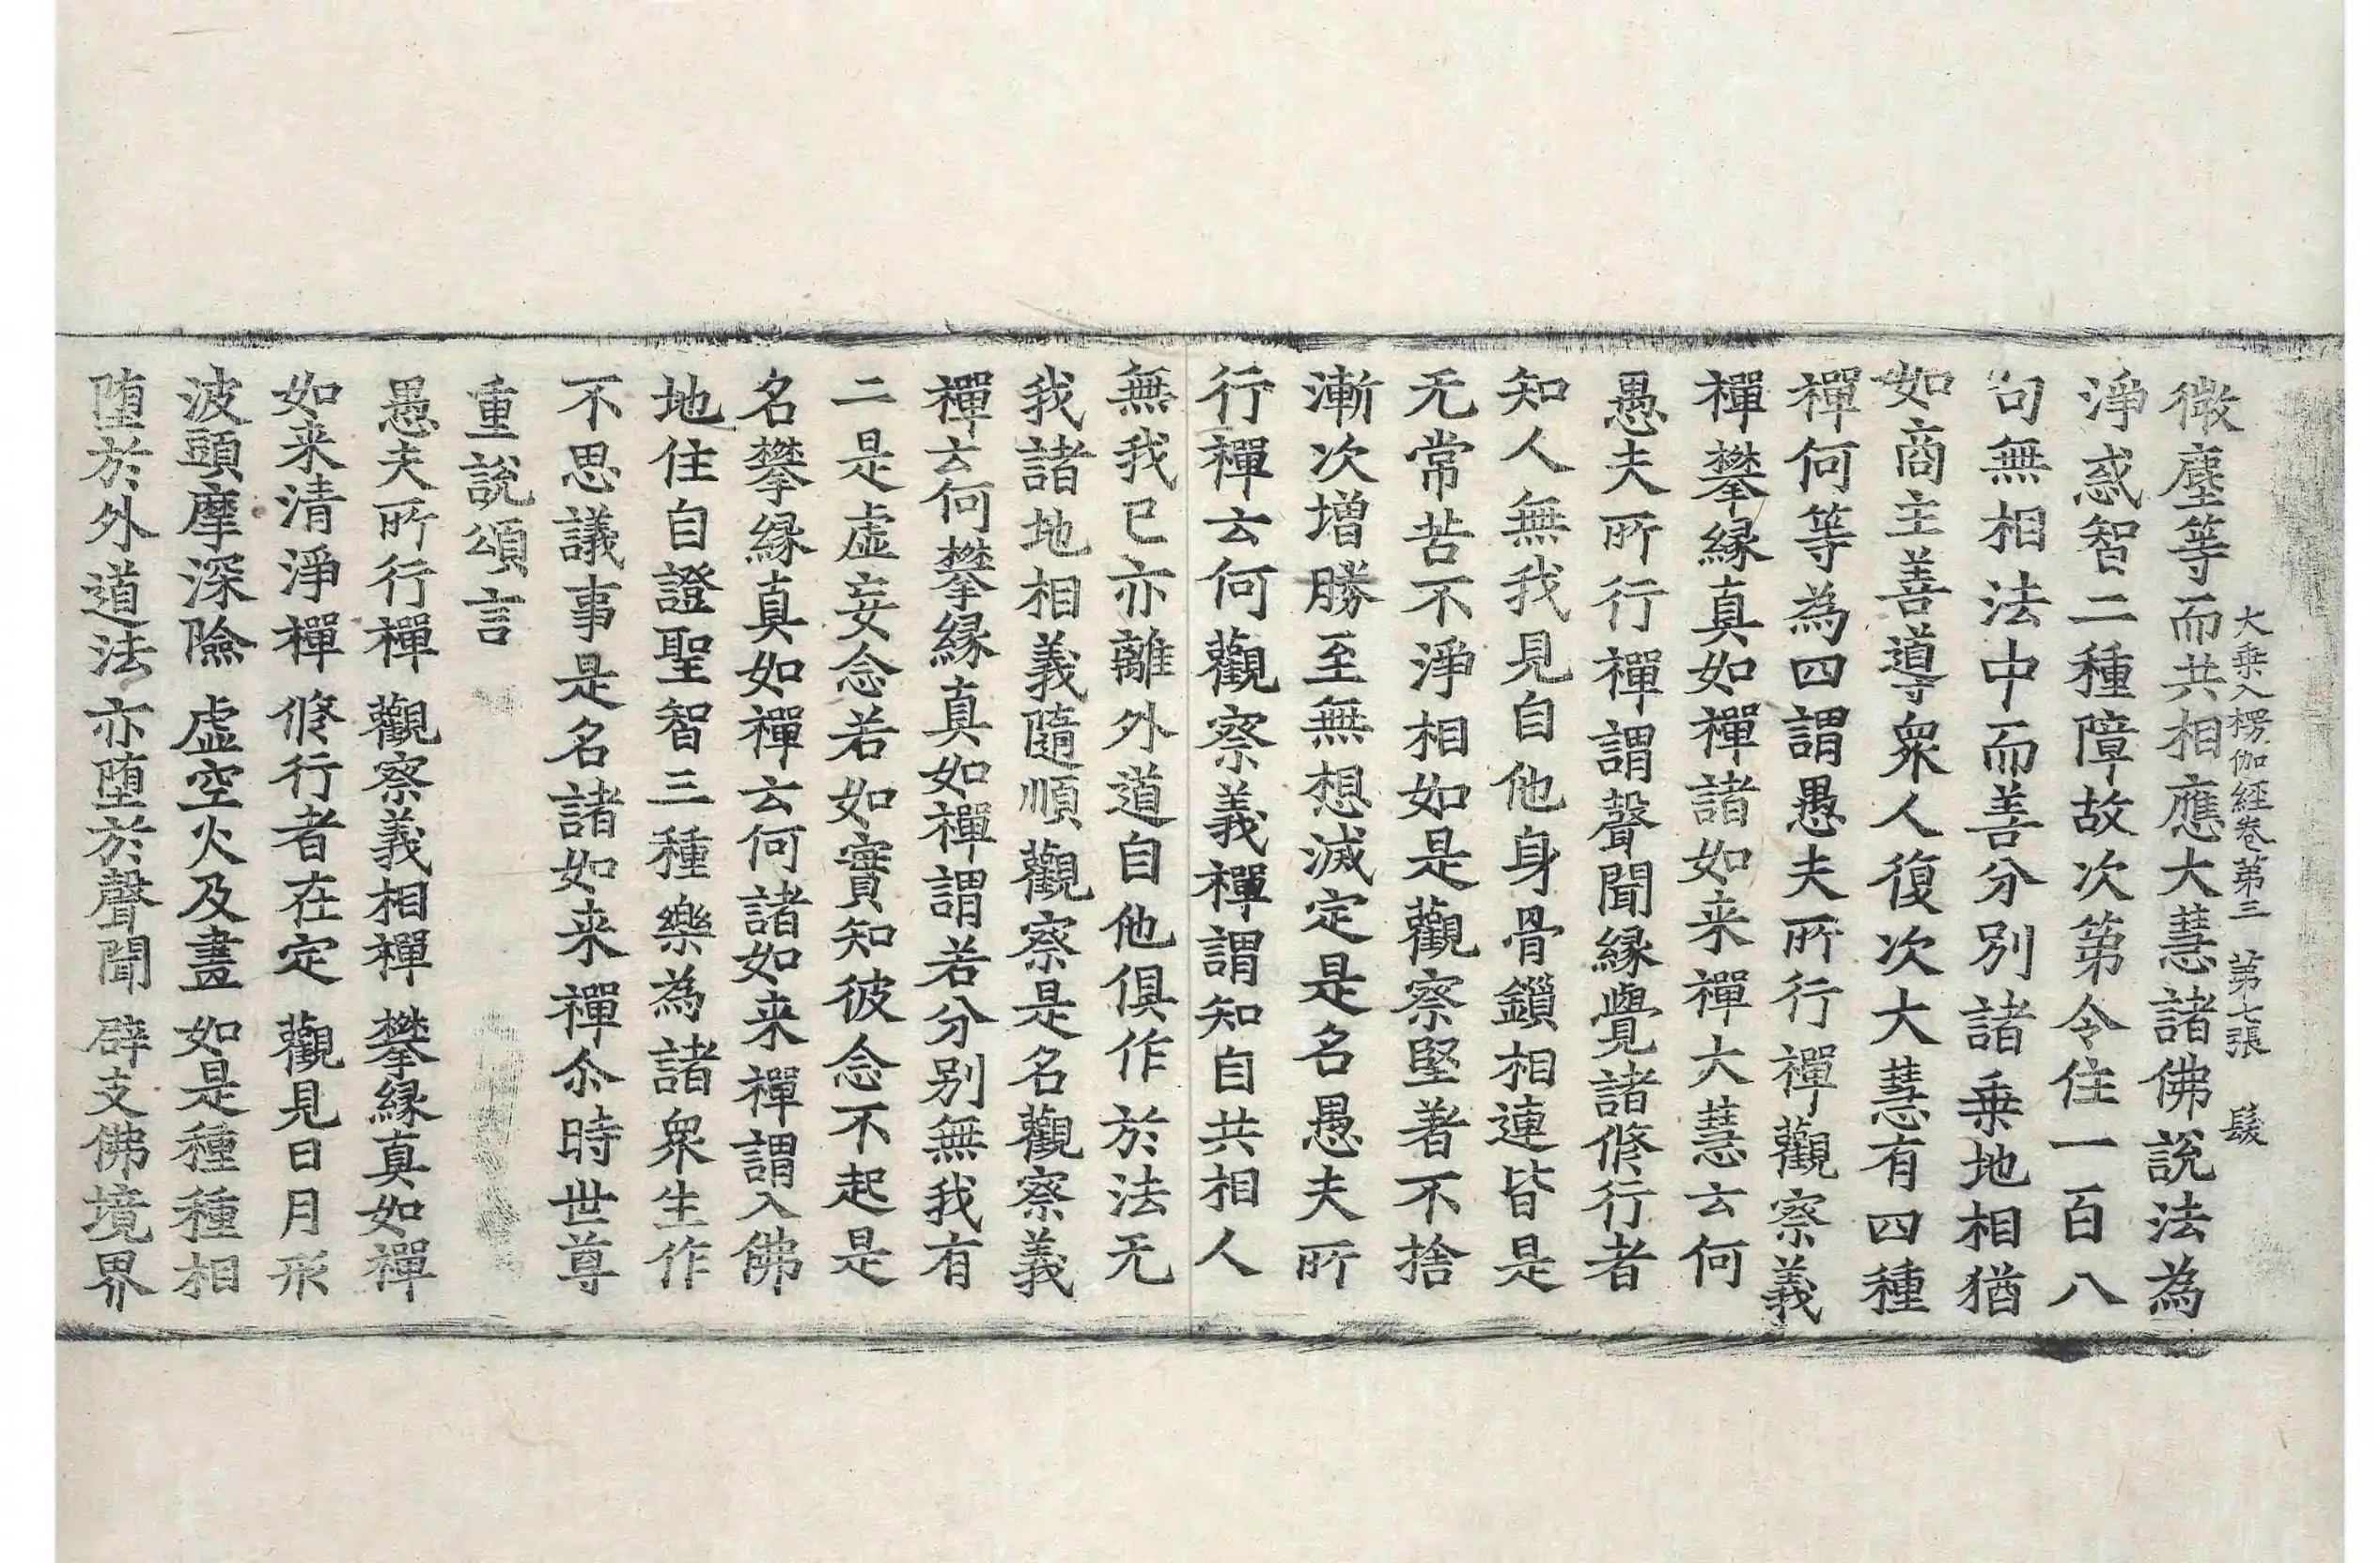 大乗入楞伽経卷第三　第七張　髲
微塵等而共相應大慧諸佛說法為
淨惑智二種障故次第令住一百八
句無相法中而善分別諸乗地相猶
如商主善導衆人復次大慧有四種
禪何等為四謂愚夫所行禪觀察義
禪攀縁真如禪諸如来禪大慧云何
愚夫所行禪謂聲聞縁覺諸修行者
知人無我見自他身骨鎖相連皆是
无常苦不淨相如是觀察堅著不捨
漸次增勝至無想滅定是名愚夫所
行禪云何觀察義禪謂知自共相人
無我已亦離外道自他俱作於法无
我諸地相義隨順觀察是名觀察義
禪云何攀縁真如禪謂若分别無我有
二是虛妄念若如實知彼念不起是
名攀縁真如禪云何諸如来禪謂入佛
地住自證聖智三種樂為諸衆生作
不思議事是名諸如来禪尒時世尊
重說頌言
愚夫所行禪　觀察義相禪　攀縁真如禪
如来清淨禪　修行者在定　觀見日月形
波頭摩深險　虛空火及盡　如是種種相
堕於外道法　亦堕於聲聞　辟支佛境界